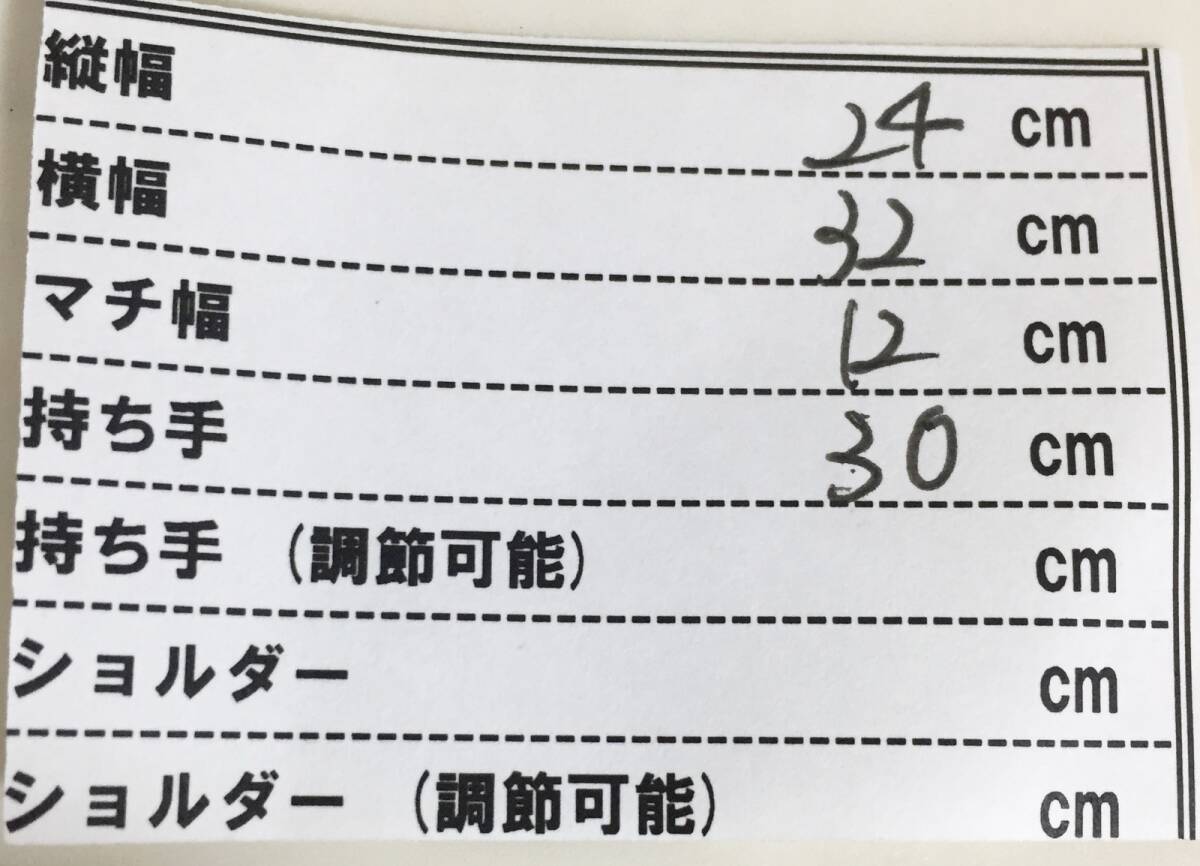 縦幅 24 cm
横幅 32 cm
マチ幅 12 cm
持ち手 30 cm
持ち手 (調節可能) cm
ショルダー cm
ショルダー (調節可能) cm